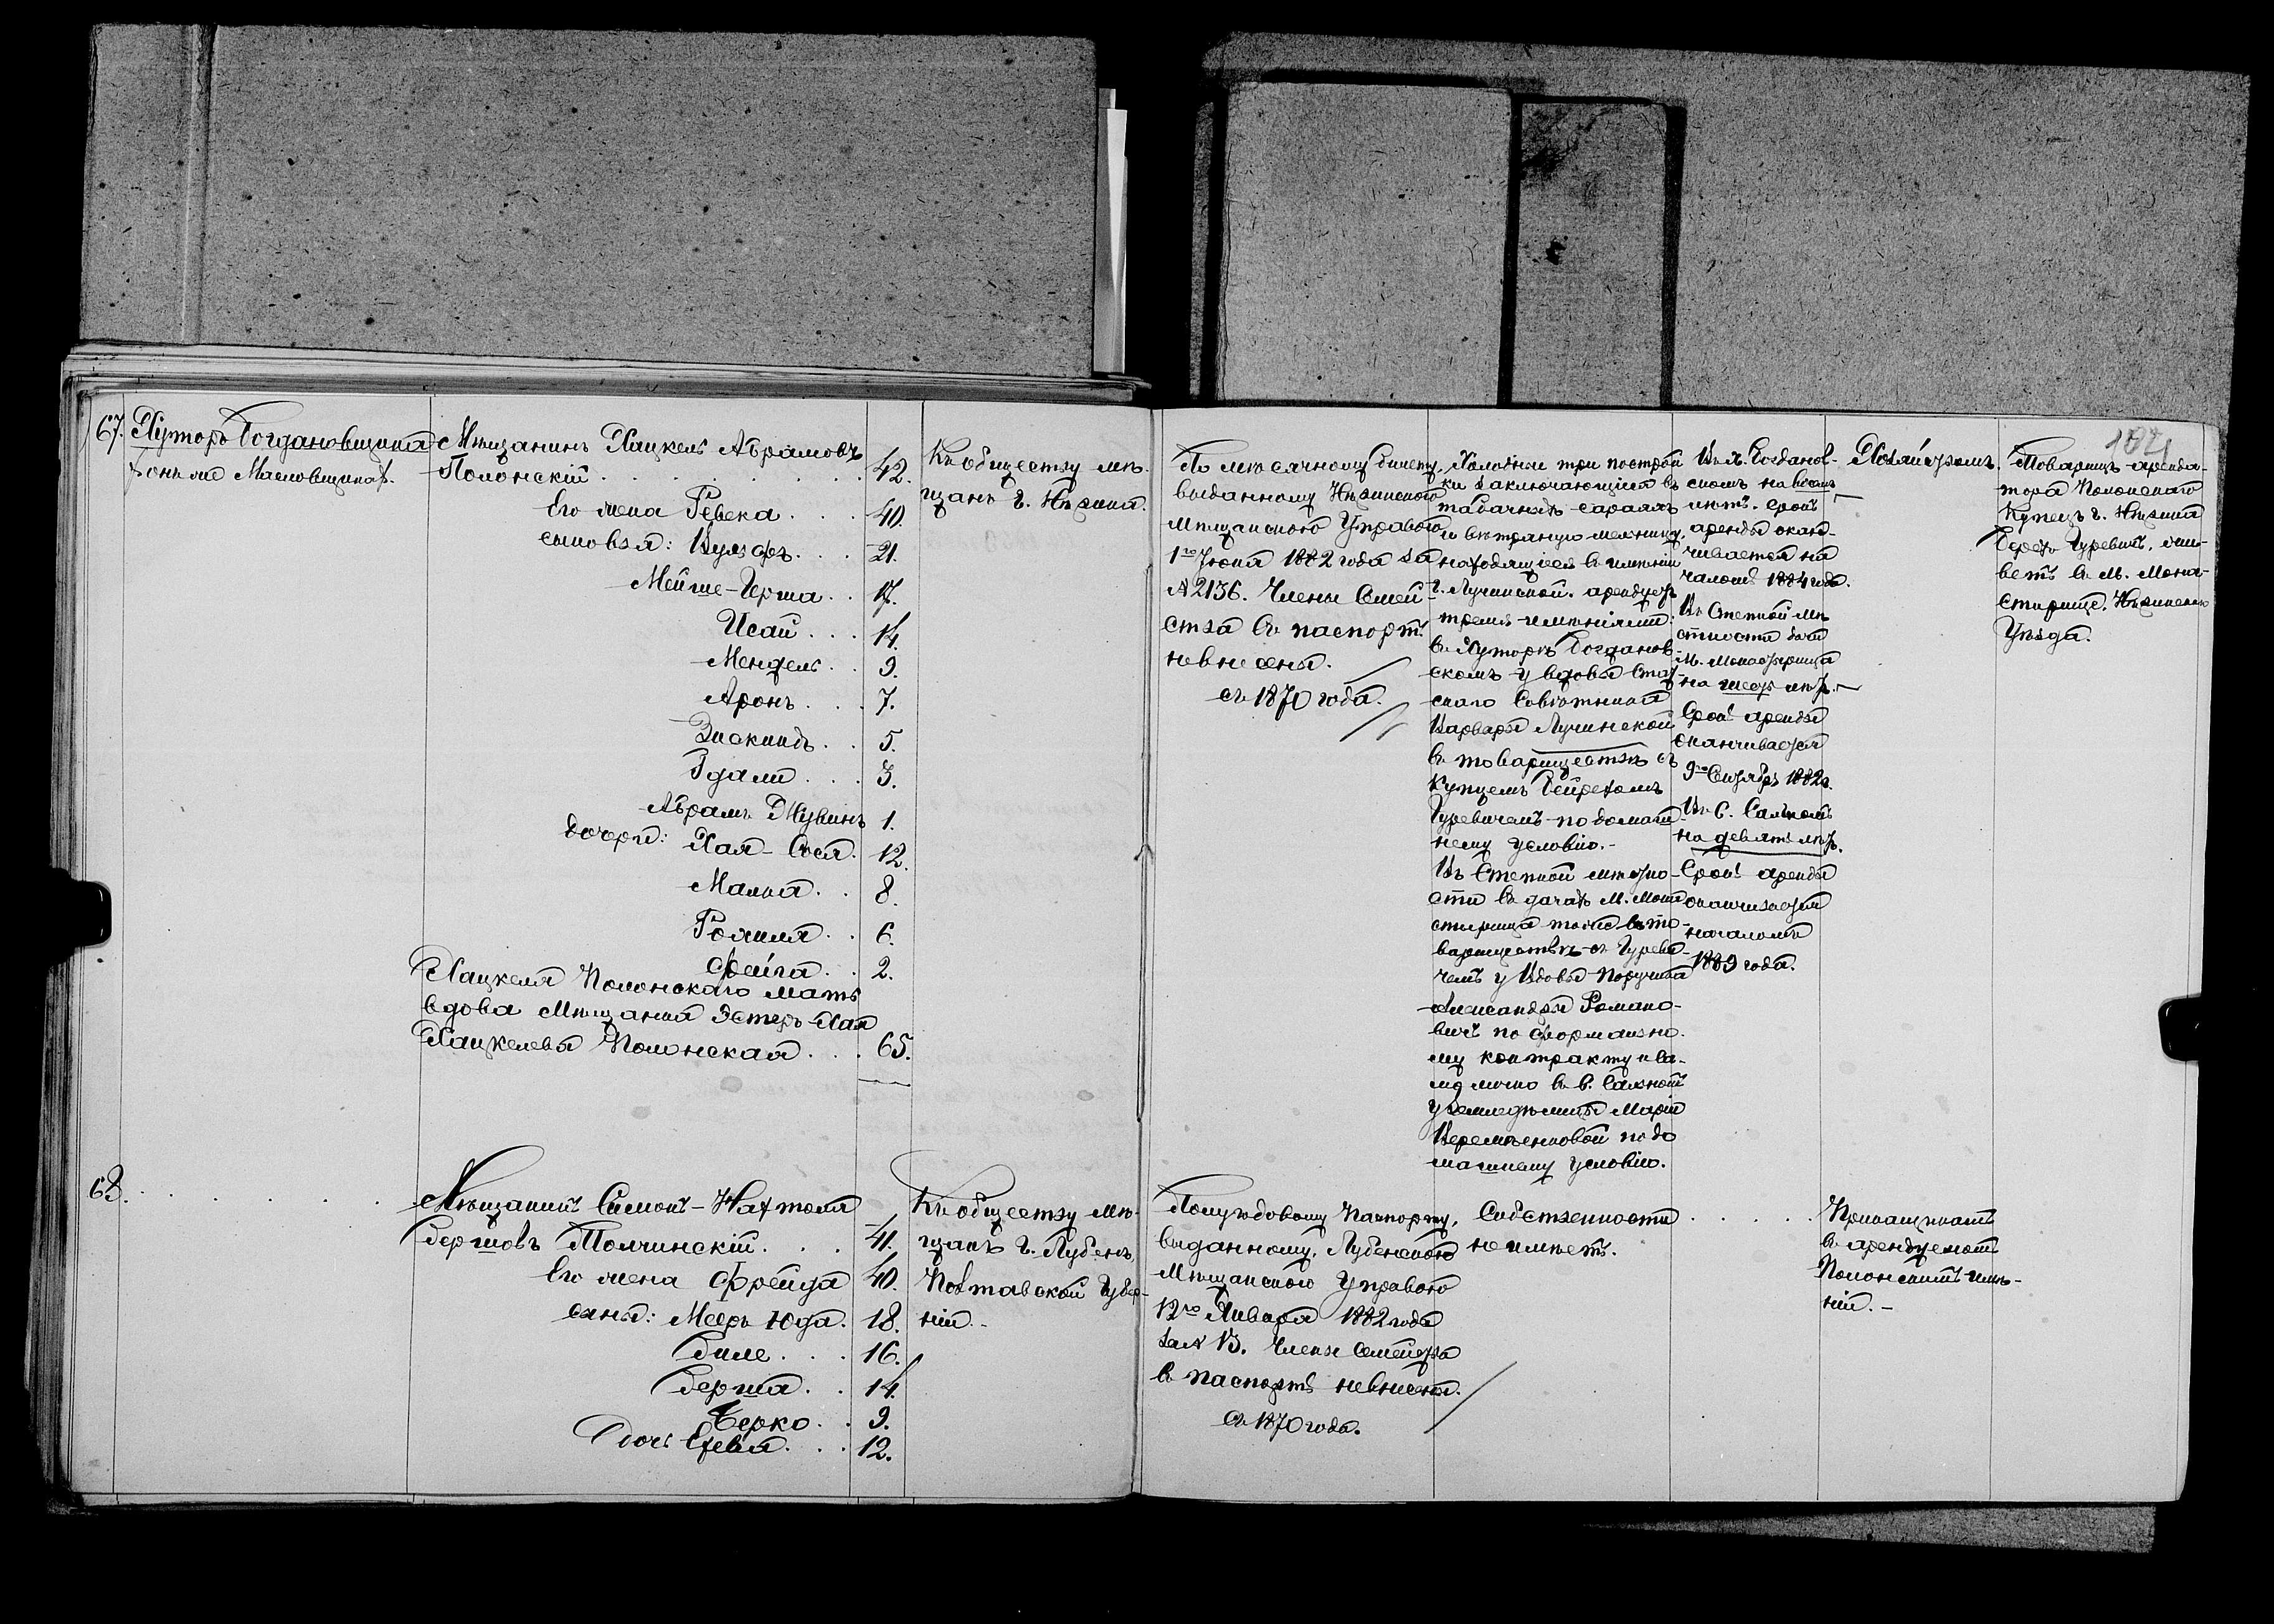 67.
Хуторъ Богдановщина
онъ же Масловщина.
Мѣщанинъ Хацкель Абрамовъ
Полонскій . . . 42.
Его жена Ревека . . . 40.
сыновья: Вульфъ . . . 21.
Мейше-Герша . . 17.
Исай . . . 14.
Мендель . . 9.
Аронъ . . . 7.
Зискиндъ . . 5.
Гдали . . . 3.
Абрамъ 1.
дочери: Хая-Сося . 12.
Малка . . 8.
Рохиля . . 6.
Фейга . . 2.
Хацкеля Полонскаго мать
вдова Мѣщанка Эстеръ-Хая
Хацкелева Полонская . . . 65.
Къ обществу мѣ-
щанъ г. Нѣжина.
По мѣсячному билету,
выданному Нѣжинскою
Мѣщанскою Управою
1го Іюня 1882 года за
№ 2136. Члены Семей-
ства въ паспортъ
невнесены.
съ 1870 года.
Холодные три построй
ки заключающіяся въ
табачныхъ сараяхъ
и вѣтряную мельницу,
находящіеся въ имѣніи
г. Лучинской. арендуетъ
тремя имѣніями:
въ Хуторѣ Богданов-
скомъ у вдовы Стат-
скаго Совѣтника
Варвары Лучинской
въ товариществѣ съ
купцемъ Бейрехомъ
Гуревичемъ по домаш-
нему условію.-
Въ Степной мѣстно-
сти въ дачахъ М. Мона
стырища тоже въ то-
вариществѣ съ Гуреви-
чемъ у Вдовы Поручика
Александры Романо-
вичъ по формально-
му контракту и са-
мъ лично въ с. Сальномъ
у землевладѣлицы Маріи
Веремѣенковой по до
машнему условію.
Въ х. Богданов-
скомъ на восемь
лѣтъ. Срокъ
аренды окан-
чивается на
чаломъ 1884 года.
Въ Степной мѣ
стности дачи
М. Монастырища
на шесть лѣтъ.
Срокъ аренды
оканчивается
9го Сентября 1882 г.
Въ С. Сальномъ
на девять лѣтъ.
Срокъ аренды
оканчивается
началомъ
1889 года.
Хозяйствомъ.
184
Товарищъ аренда-
тора Полонскаго
Купецъ г. Нѣжина
Берехъ Гуревичъ, жи-
ветъ въ М. Мона-
стырищѣ, Нѣжинскаго
Уѣзда.
68.
Мѣщанинъ Симонъ-Нахтоля
Бершовъ Толчинскій . . . 41.
Его жена Фрейда 40.
сыны: Мееръ Юда . 18.
Биле . . . 16.
Берша . . 14.
Берко . . 9.
дочь Хева . . . 12.
Къ обществу мѣ-
щанъ г. Лубенъ,
Полтавской Губер-
ніи.-
Полугодовому паспорту,
выданному, Лубенскою
Мѣщанскою Управою
12го Января 1882 года
за № 13. Члены Семейства
въ паспортъ невнесены.
съ 1870 года.
Собственности
неимѣетъ.
Прикащикомъ
въ арендуемомъ
Полонскимъ имѣ-
ніи.-